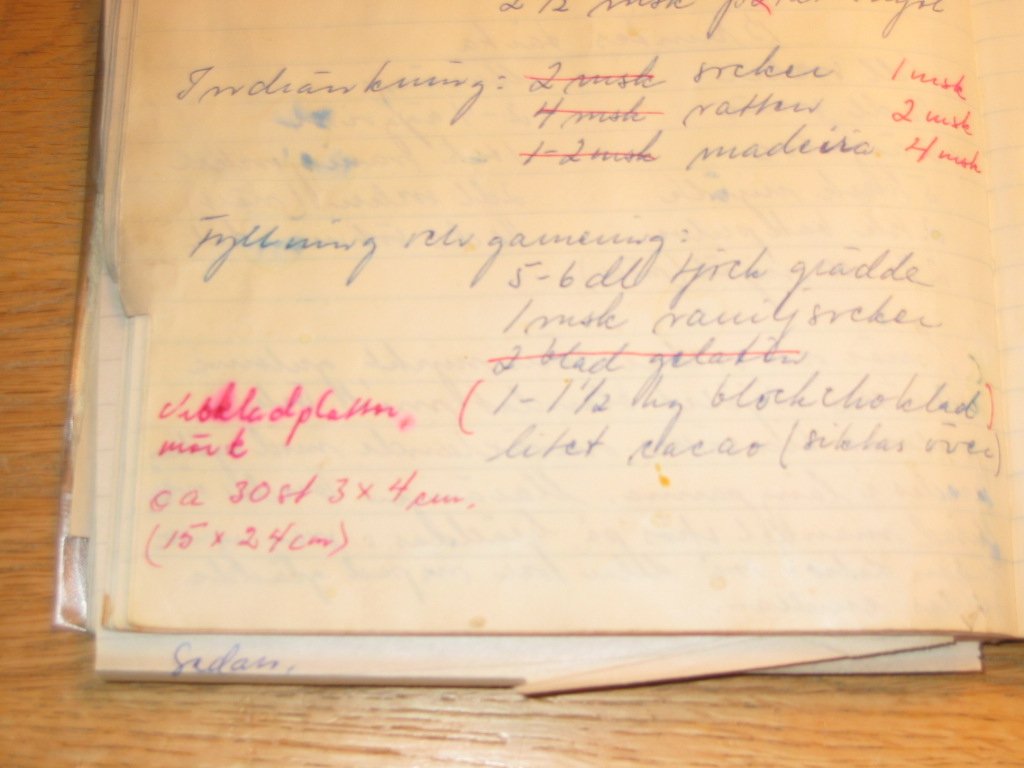 2 1/2 msk
Indränkning: 2 msk socker 1 msk
4 msk vatten 2 msk
1-2 msk madeira 4 msk
Fyllning och garnering:
5-6 dl tjock grädde
1 msk vaniljsocker
2 blad gelatin
chokladplattor, (1-1 1/2 hg blockchoklad)
mörk litet cacao (siktas över)
ca 30 st 3 x 4 cm.
(15 x 24 cm)
Sedan,